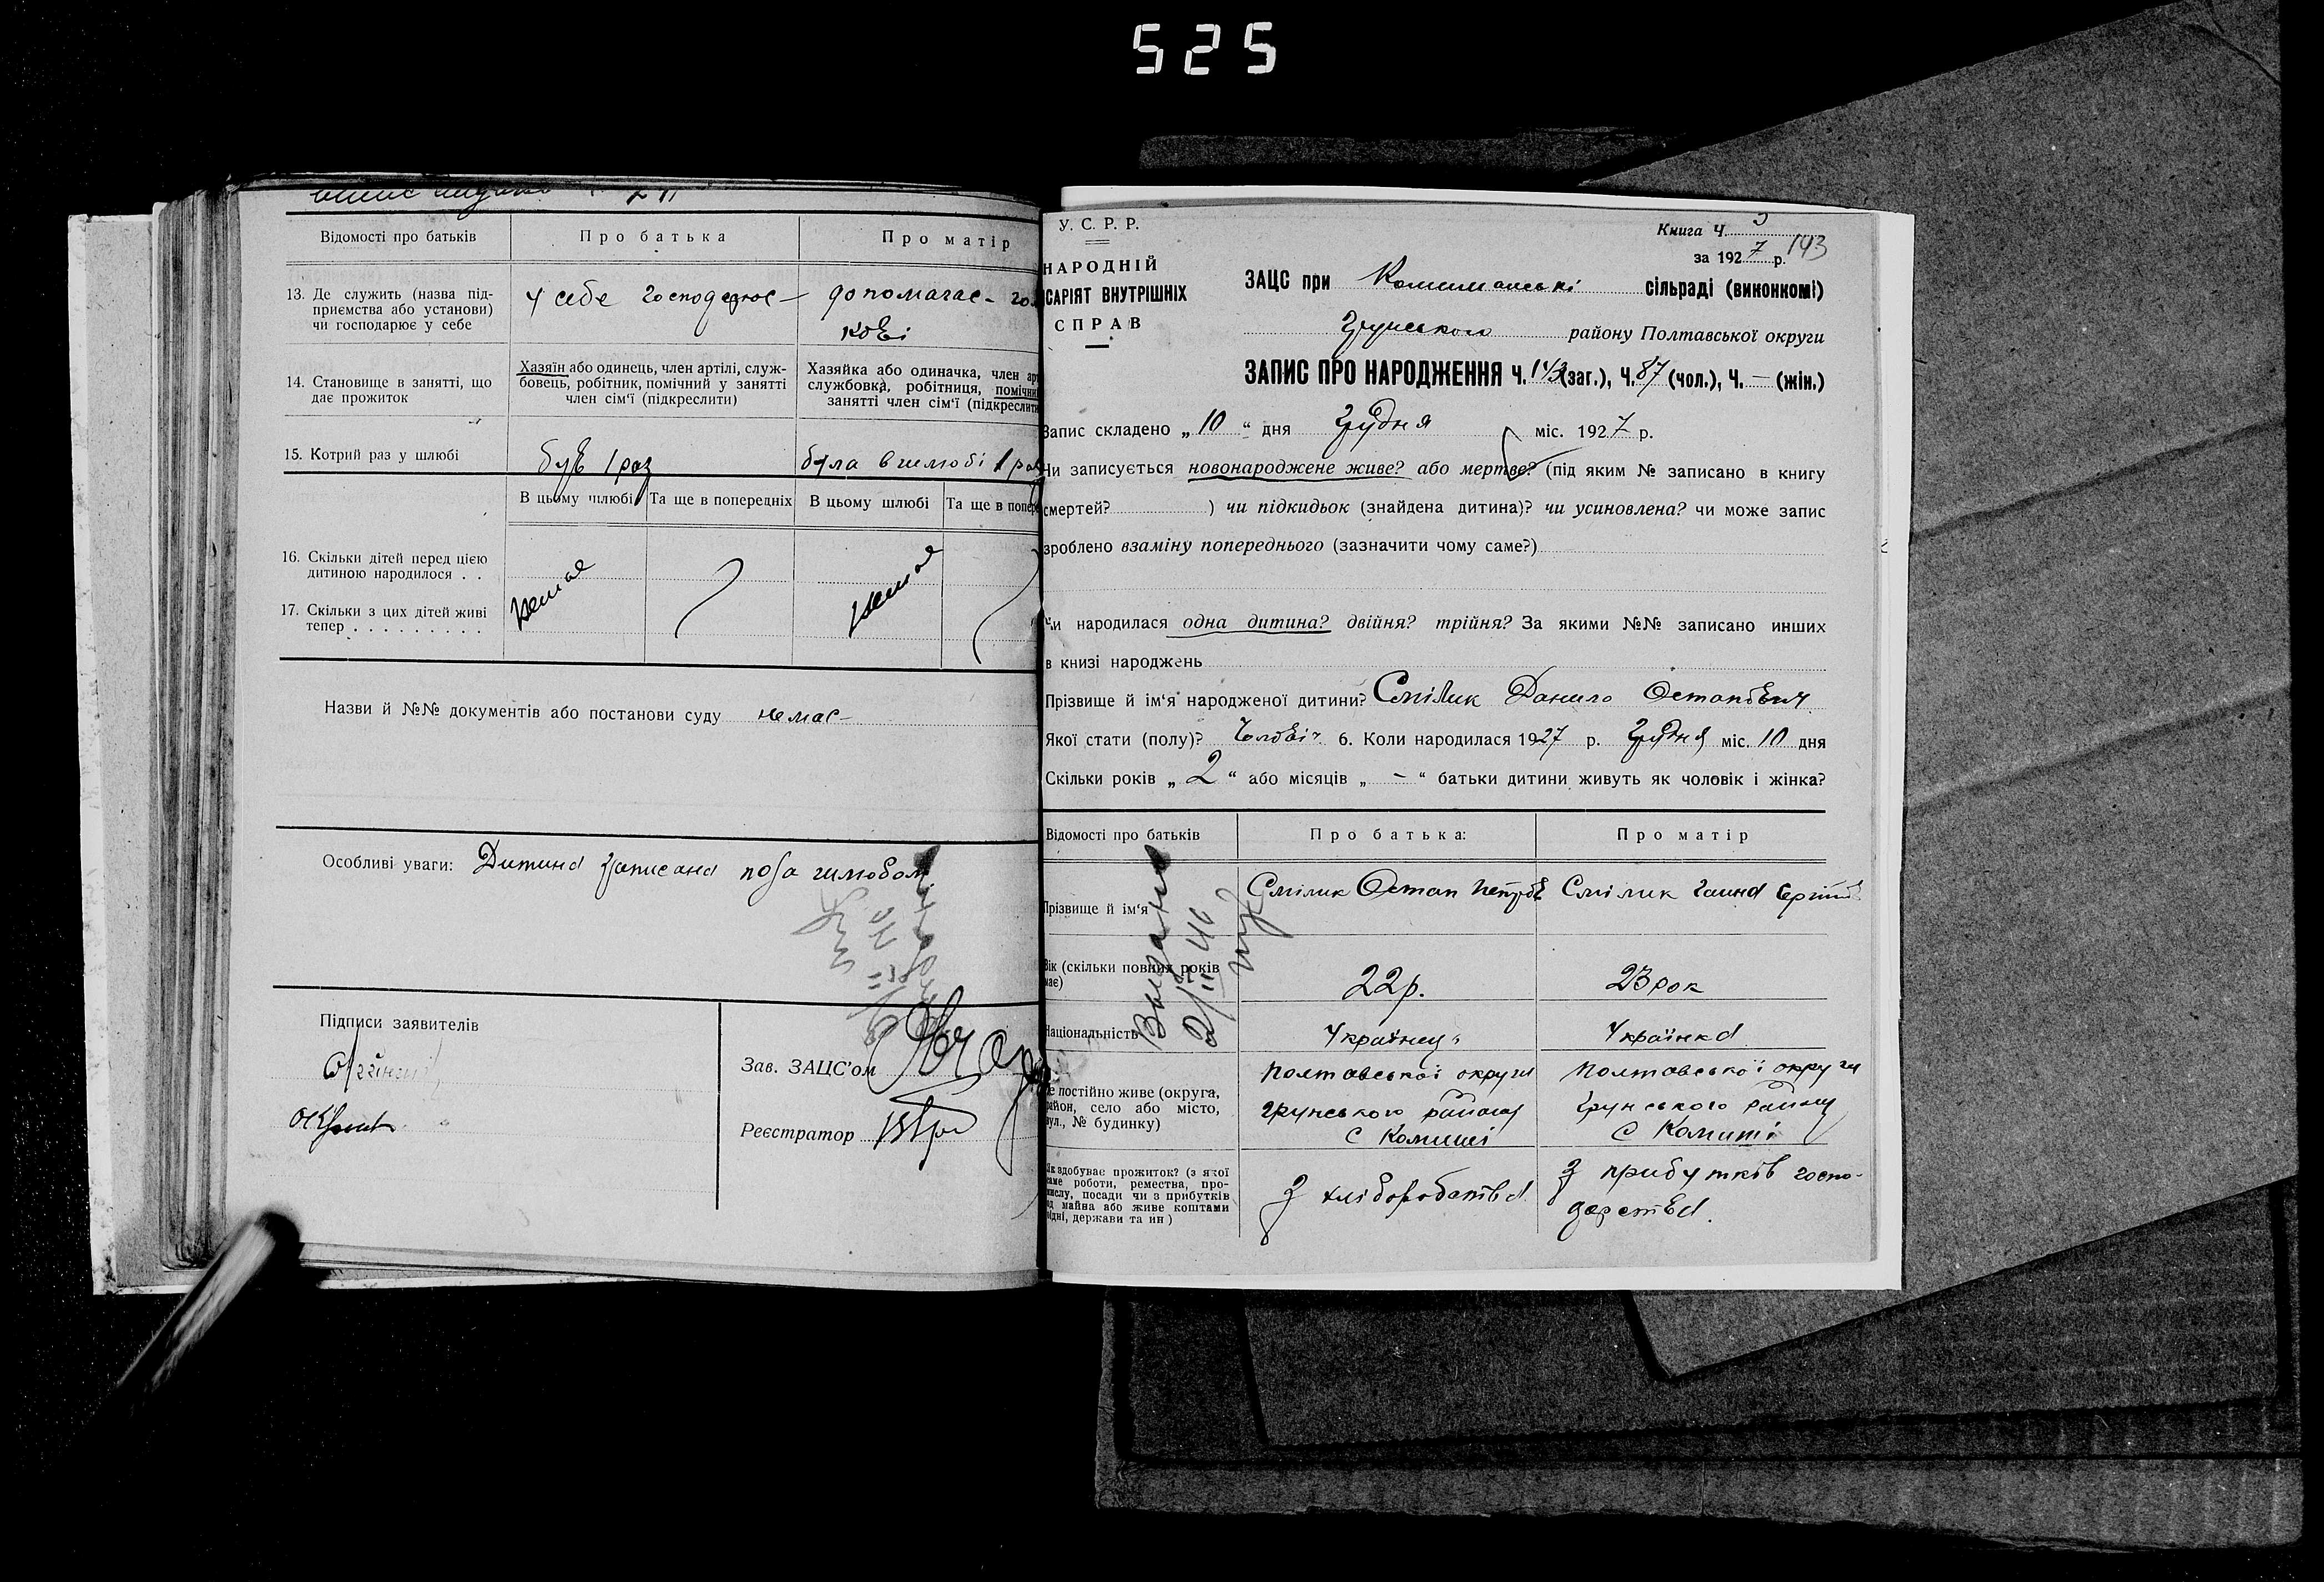 525
Відомості про батьків
Про батька
Про матір
13. Де служить (назва під-
приємства або установи)
чи господарює у себе
у себе господарює
допомагає
14. Становище в занятті, що
дає прожиток
Хазяїн або одинець, член артілі, служ-
бовець, робітник, помічний у занятті
член сім'ї (підкреслити)
Хазяйка або одиначка, член
службовка, робітниця, помічни
занятті член сім'ї (підкреслити
15. Котрий раз у шлюбі
був 1 раз
була в шлюбі 1 раз
В цьому шлюбі
Та ще в попередніх
В цьому шлюбі
Та ще в попере
16. Скільки дітей перед цією
дитиною народилося . .
17. Скільки з цих дітей живі
тепер . . . . . . . . .
немає
немає
Назви й №№ документів або постанови суду немає
Особливі уваги: Дитина записана поза шлюбом.
Підписи заявителів
Зав. ЗАЦС'ом
Реєстратор
У. С. Р. Р.
НАРОДНІЙ
САРІЯТ ВНУТРІШНІХ
СПРАВ
Книга Ч. 3
за 1927 р. 143
ЗАЦС при Комишанські сільраді (виконкомі)
Грунського району Полтавської округи
ЗАПИС ПРО НАРОДЖЕННЯ Ч. 143 (заг.), Ч. 87 (чол.), Ч. — (жін.)
Запис складено „ 10 “ дня Грудня міс. 1927 р.
Чи записується новонароджене живе? або мертве? (під яким № записано в книгу
смертей? ) чи підкидьок (знайдена дитина)? чи усиновлена? чи може запис
зроблено взаміну попереднього (зазначити чому саме?)
Чи народилася одна дитина? двійня? трійня? За якими №№ записано инших
в книзі народжень
Прізвище й ім'я народженої дитини? Смілик Данило Остапович
Якої стати (полу)? Чоловіч. 6. Коли народилася 1927 р. Грудня міс. 10 дня
Скільки років „ 2 “ або місяців „ - “ батьки дитини живуть як чоловік і жінка?
Відомості про батьків
Про батька:
Про матір
Прізвище й ім'я
Смілик Остап Петров
Смілик Ганна
Вік (скільки повних років
має)
22р.
23 рок
Національність
Українець
Українка
Де постійно живе (округа,
район, село або місто,
вул., № будинку)
Полтавської округи
Грунського району
с Комиші
Полтавської округи
Грунського району
с Комиші
Як здобуває прожиток? (з якої
саме роботи, ремества, про-
мислу, посади чи з прибутків
од майна або живе коштами
рідні, держави та ин)
З хліборобства
З прибутків госпо-
дарства.
Видано